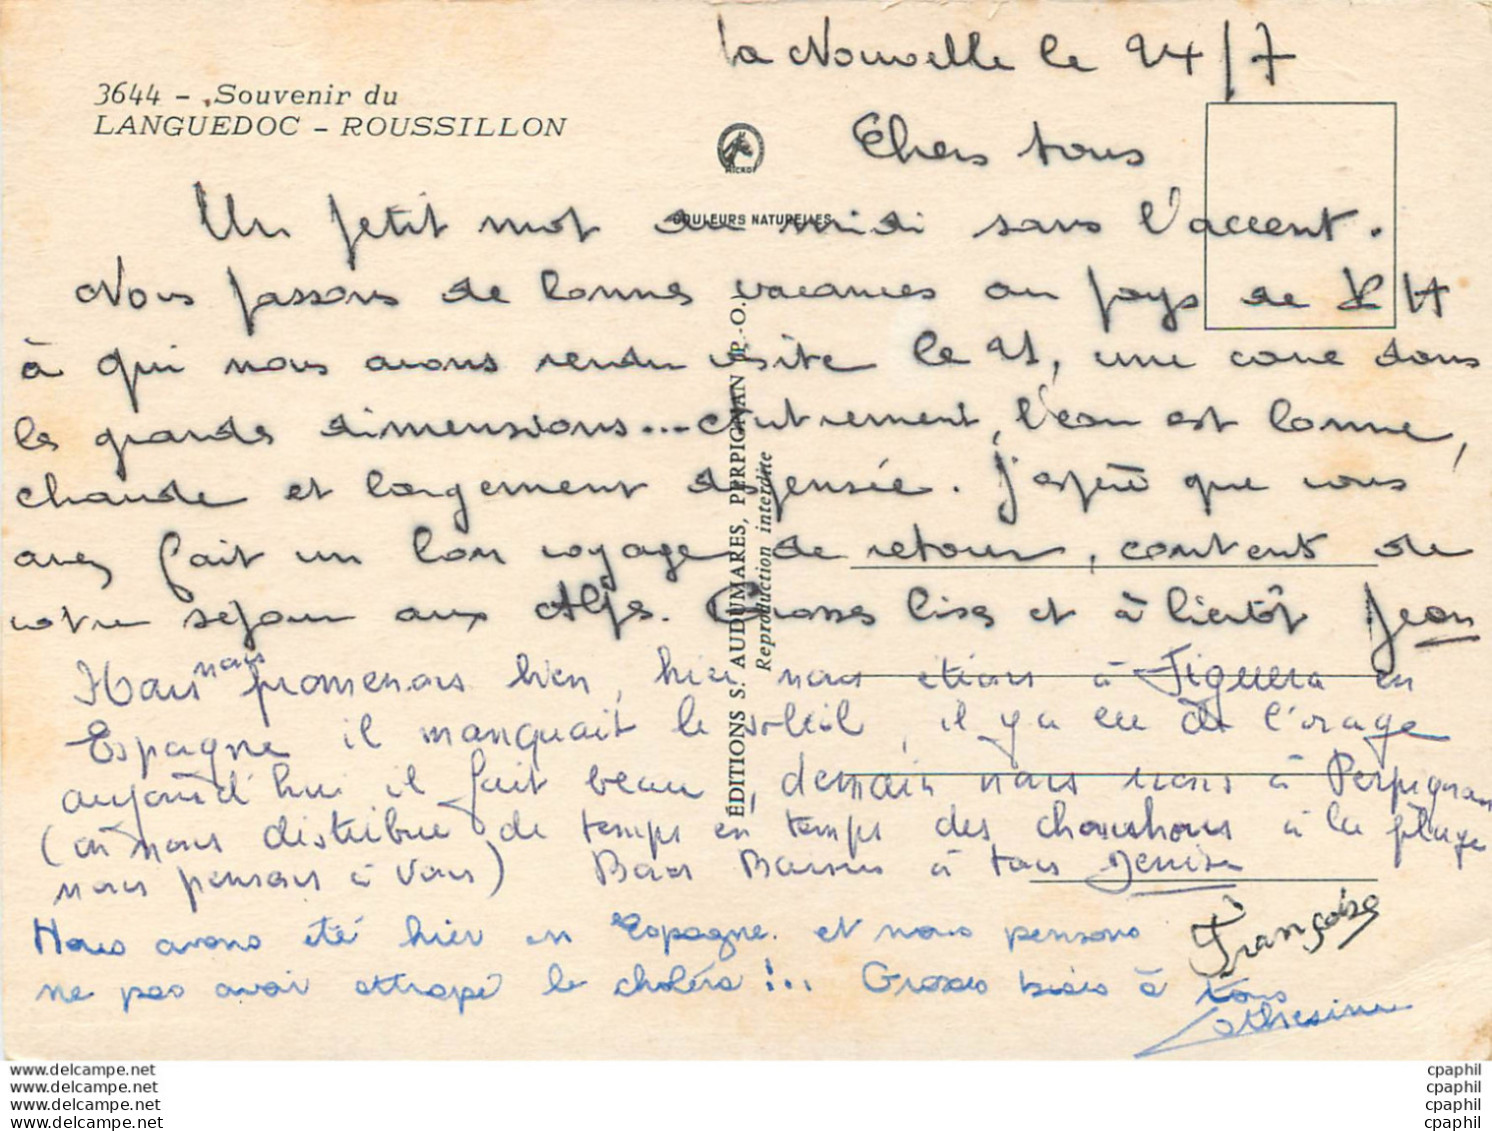 la Nouvelle le 24/7
3644 - Souvenir du
LANGUEDOC - ROUSSILLON
Chers tous
HICKO
COULEURS NATURELLES
Un petit mot du midi sans l'accent.
Nous passons de bonnes vacances au pays de KH
à qui nous avons rendu visite le 21, une cave dans
les grandes dimensions... Autrement, l'eau est bonne,
chaude et largement dépensée. J'espère que vous
avez fait un bon voyage de retour, contents de
votre séjour aux Alpes. Grosses bises et à bientôt Jean
ÉDITIONS S. AUDUMARES, PERPIGNAN (P.-O.)
Reproduction interdite
Nous nous promenons bien, hier nous étions à Figuera en
Espagne il manquait le soleil, il y a eu de l'orage
aujourd'hui il fait beau, demain nous irons à Perpignan
(on nous distribue de temps en temps des chouchous à la plage
nous pensons à vous) Bons Baisers à tous Denise
Françoise
Nous avons été hier en Espagne. et nous pensons
ne pas avoir attrapé le choléra!.. Grosses bises à tous
Catherine
www.delcampe.net
www.delcampe.net
www.delcampe.net
www.delcampe.net
cpaphil
cpaphil
cpaphil
cpaphil